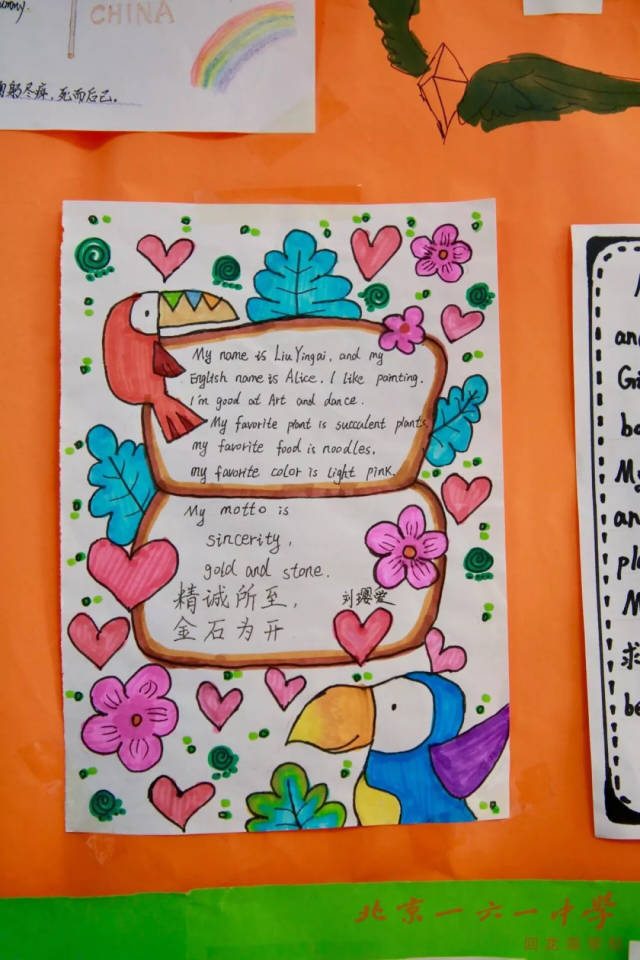 CHINA
尽瘁，死而后已。
My name is Liu Yingai, and my
English name is Alice. I like painting.
I'm good at Art and dance.
My favorite plant is succulent plants,
my favorite food is noodles,
my favorite color is light pink.
My motto is
sincerity,
gold and stone.
精诚所至，
金石为开
刘璎爱
My
an
pla
M
求
be
北京一六一中学